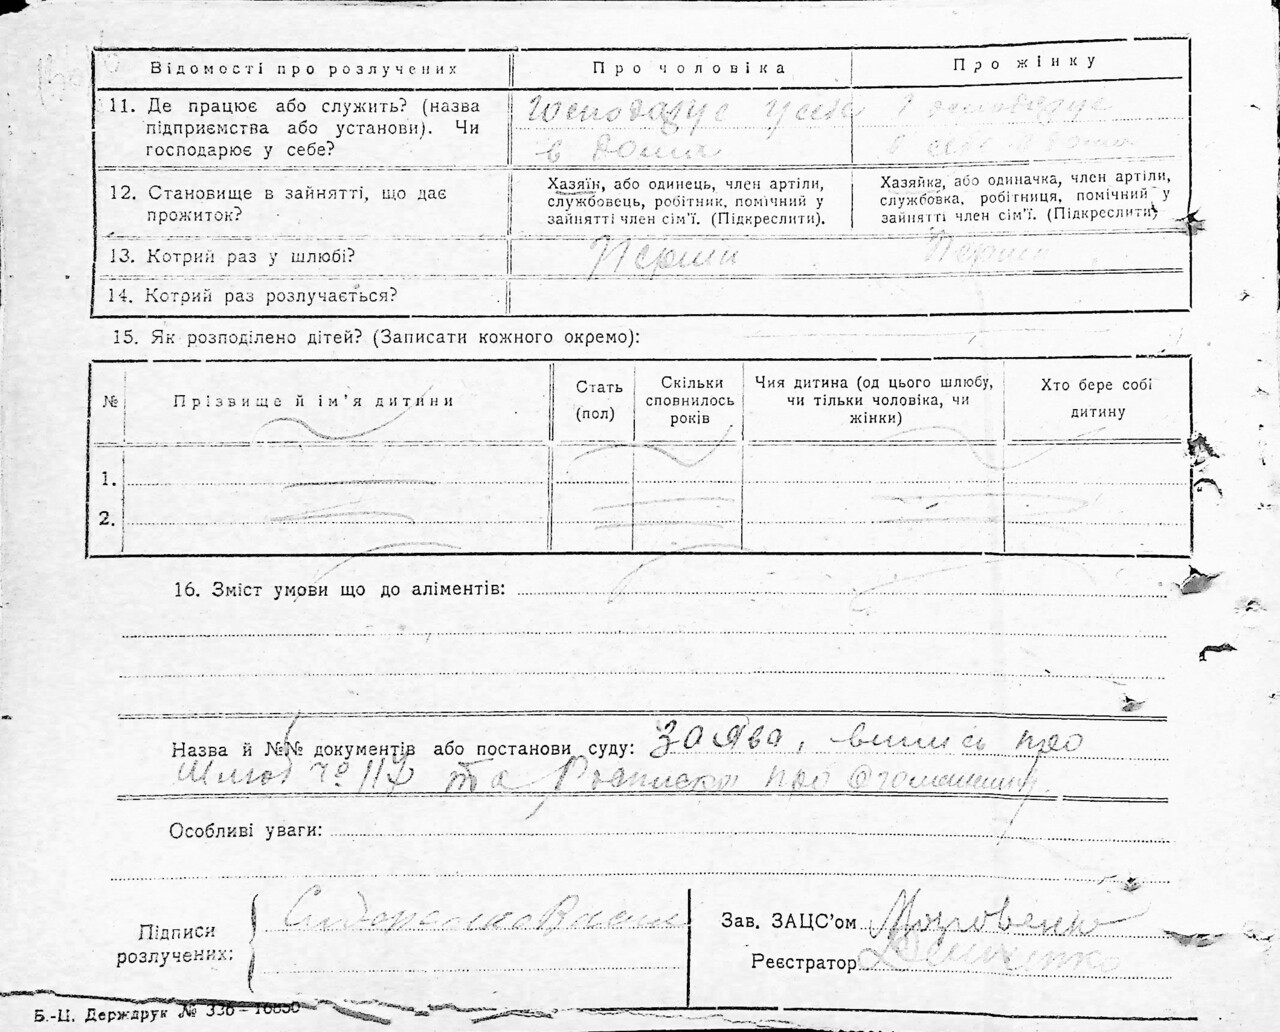 Відомості про розлучених Про чоловіка Про жінку
11. Де працює або служить? (назва підприємства або установи). Чи господарює у себе?
Господарує у себе
в дома
Господарує
в себе в дома
12. Становище в зайнятті, що дає прожиток?
Хазяїн, або одинець, член артіли,
службовець, робітник, помічний у
зайнятті член сім'ї. (Підкреслити).
Хазяйка, або одиначка, член артіли,
службовка, робітниця, помічний у
зайнятті член сім'ї. (Підкреслити)
13. Котрий раз у шлюбі? Перший Перший
14. Котрий раз розлучається?
15. Як розподілено дітей? (Записати кожного окремо):
№ Прізвище й ім'я дитини
Стать
(пол)
Скільки
сповнилось
років
Чия дитина (од цього шлюбу,
чи тільки чоловіка, чи
жінки)
Хто бере собі
дитину
1.
2.
16. Зміст умови що до аліментів:
Назва й №№ документів або постанови суду: заява, випись про
Шлюб № та Розписка про
Особливі уваги:
Підписи
розлучених:
Сидоренко Васил
Зав. ЗАЦС'ом
Реєстратор
Б.-Ц. Держдрук № 336-16850